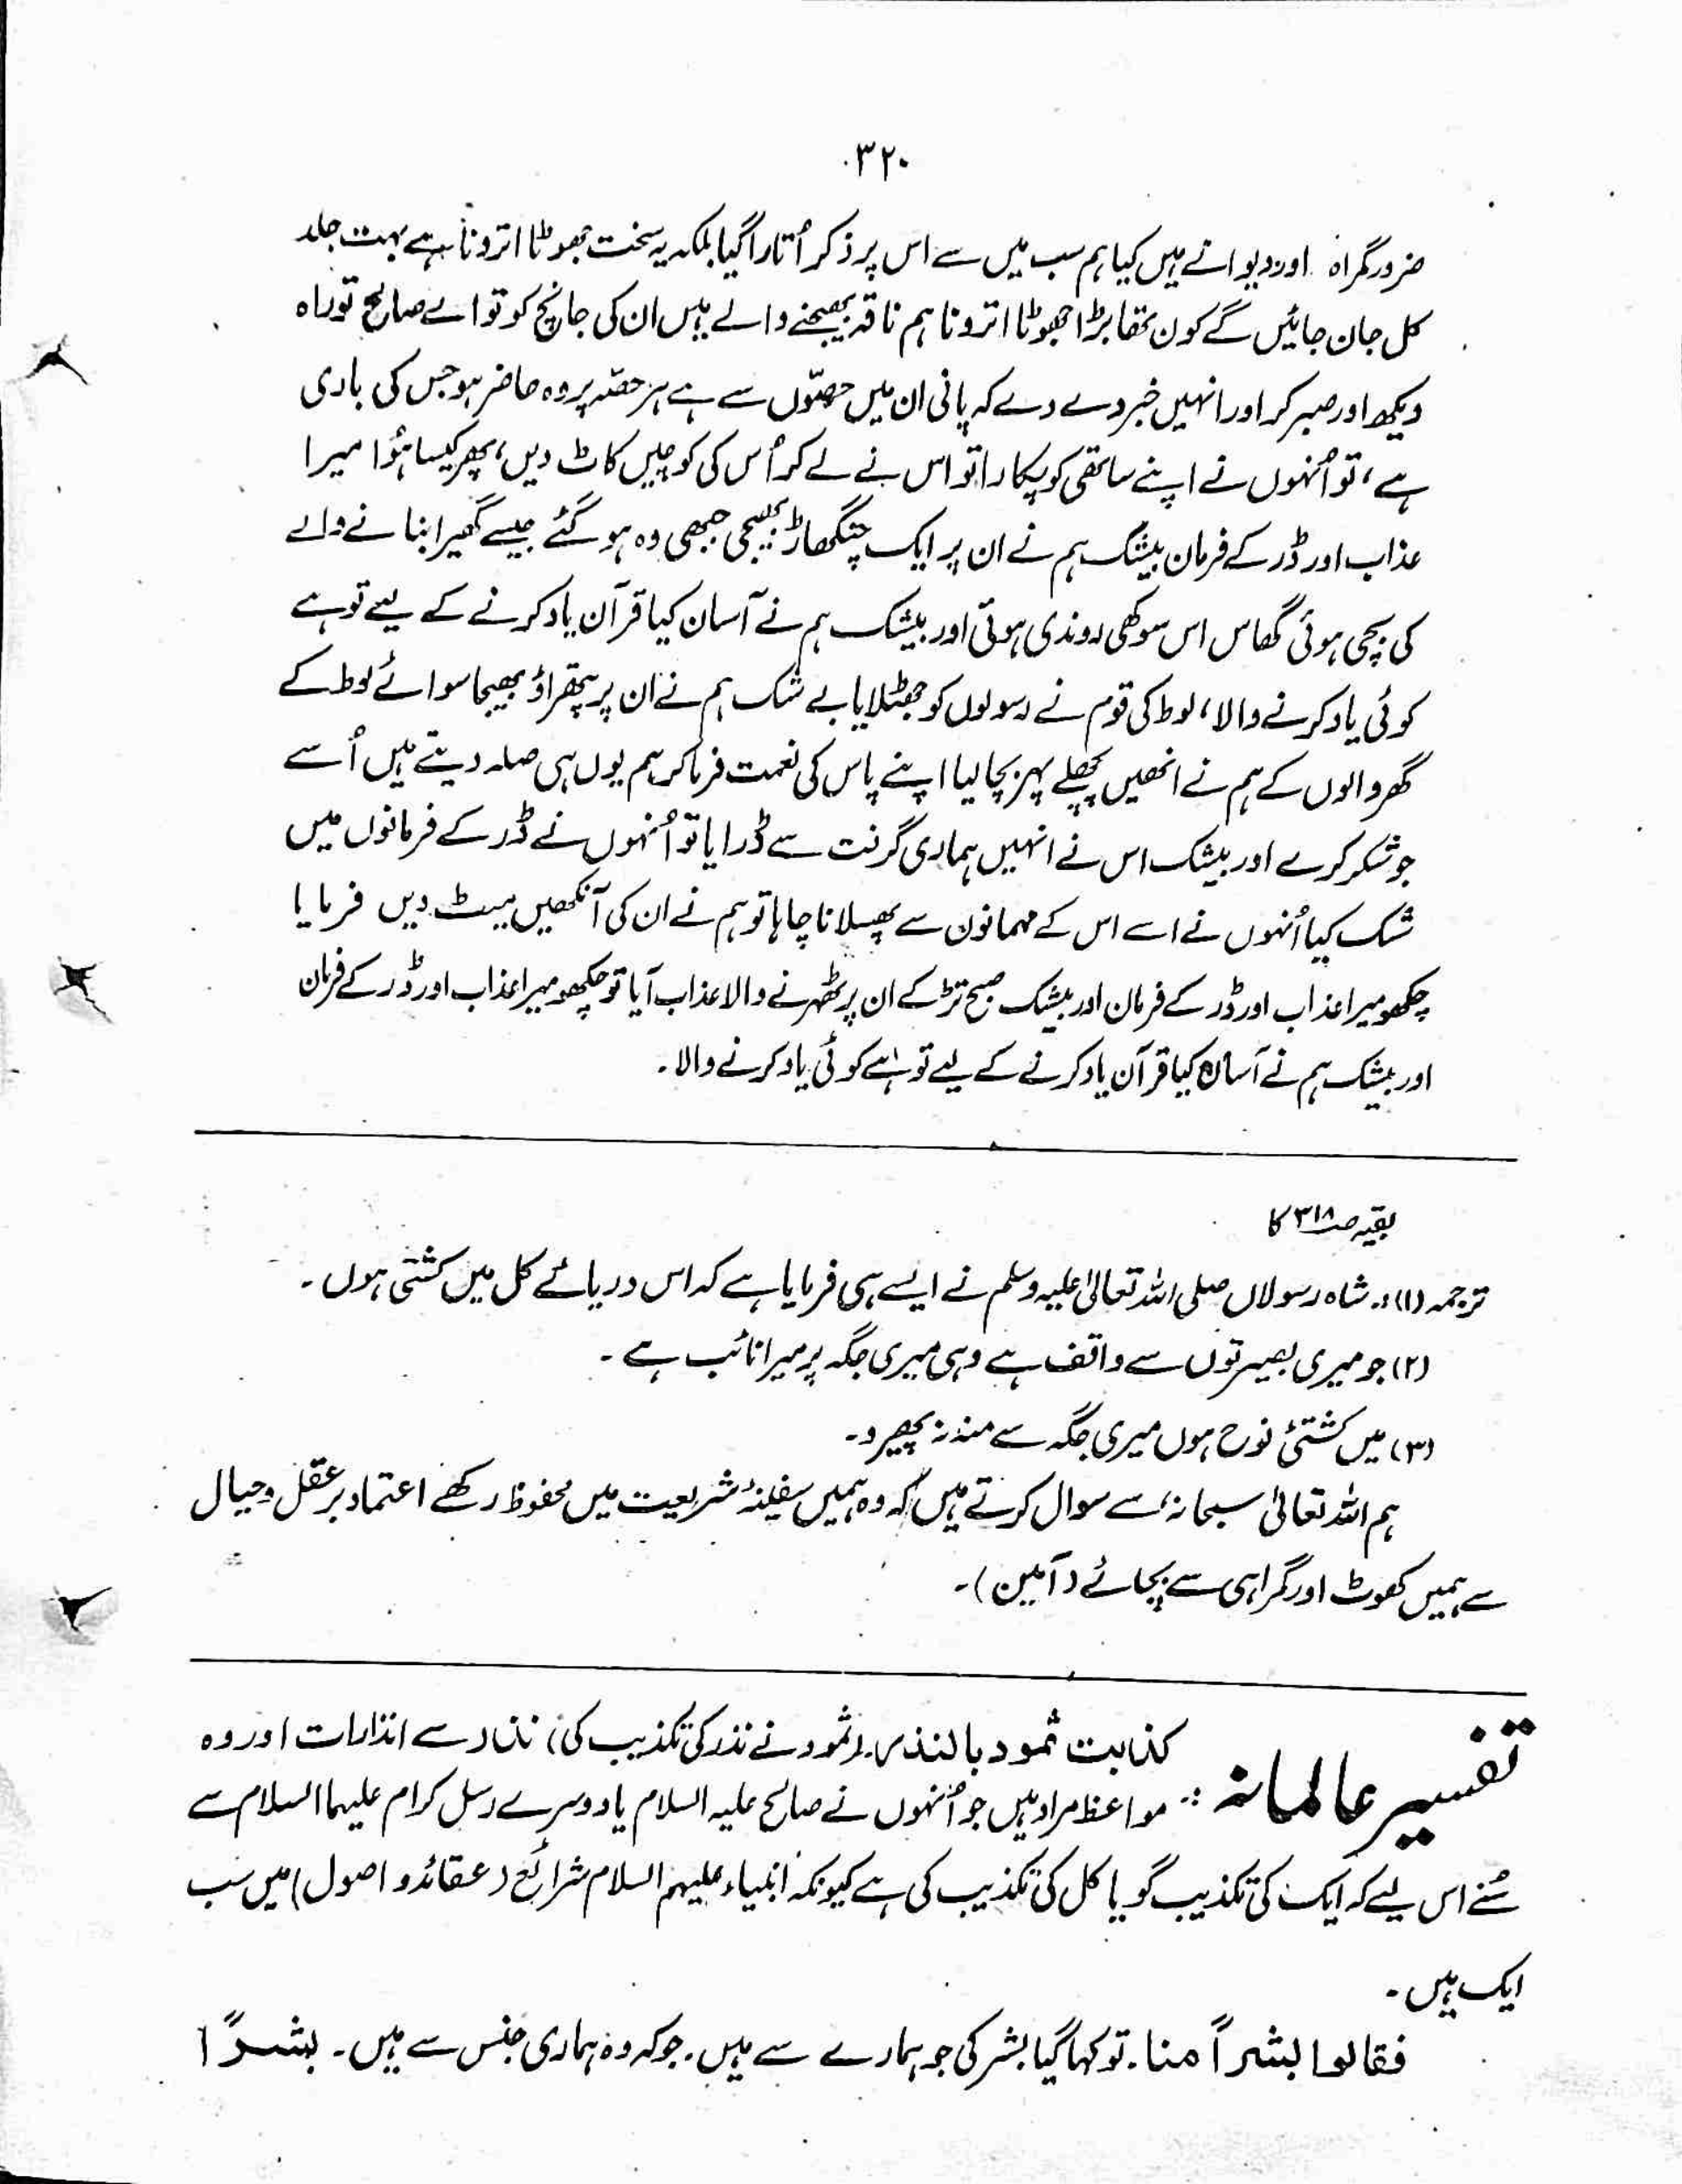 ۳۲۰
ضرور گمراہ اور دیوانے ہیں کیا ہم سب میں سے اس پر ذکر اُتارا گیا بلکہ یہ سخت جھوٹا اترونا ہے بہت جلد
کل جان جائیں گے کون تھا بڑا جھوٹا اترونا ہم ناقہ بھیجنے والے ہیں ان کی جانچ کو تو اے صالح تو راہ
دیکھ اور صبر کر اور انہیں خبر دے دے کہ پانی ان میں حصّوں سے ہے ہر حصّہ پر وہ حاضر ہو جس کی باری
ہے، تو اُنہوں نے اپنے ساتھی کو پکارا تو اس نے لے کر اُس کی کوچیں کاٹ دیں، پھر کیسا ہُوا میرا
عذاب اور ڈر کے فرمان بیشک ہم نے ان پر ایک چنگھاڑ بھیجی جبھی وہ ہو گئے جیسے گھیرا بنانے والے
کی بچی ہوئی گھاس اس سوکھی روندی ہوئی اور بیشک ہم نے آسان کیا قرآن یاد کرنے کے لیے تو ہے
کوئی یاد کرنے والا، لوط کی قوم نے رسولوں کو جھٹلایا بے شک ہم نے ان پر پتھراؤ بھیجا سوائے لوط کے
گھر والوں کے ہم نے انھیں پچھلے پہر بچا لیا اپنے پاس کی نعمت فرما کر ہم یوں ہی صلہ دیتے ہیں اُسے
جو شکر کرے اور بیشک اس نے انہیں ہماری گرفت سے ڈرایا تو اُنہوں نے ڈر کے فرمانوں میں
شک کیا اُنہوں نے اسے اس کے مہمانوں سے پھسلانا چاہا تو ہم نے ان کی آنکھیں میٹ دیں فرمایا
چکھو میرا عذاب اور ڈر کے فرمان اور بیشک صبح تڑکے ان پر ٹھہرنے والا عذاب آیا تو چکھو میرا عذاب اور ڈر کے فرمان
اور بیشک ہم نے آسان کیا قرآن یاد کرنے کے لیے تو ہے کوئی یاد کرنے والا۔
بقیہ صـ۳۱۸ کا
ترجمہ (۱)؛ شاہ رسولاں صلی اللہ تعالیٰ علیہ وسلم نے ایسے ہی فرمایا ہے کہ اس دریائے کل میں کشتی ہوں۔
(۲) جو میری بصیرتوں سے واقف ہے وہی میری جگہ پر میرا نائب ہے۔
(۳) میں کشتیٔ نوح ہوں میری جگہ سے منہ نہ پھیرو۔
ہم اللہ تعالیٰ سبحانہٗ سے سوال کرتے ہیں کہ وہ ہمیں سفینۂ شریعت میں محفوظ رکھے اعتماد بر عقل وخیال
سے ہمیں کھوٹ اور گمراہی سے بچائے (آمین)۔
تفسیر عالمانہ : کذبت ثمود بالنذر۔ (ثمود نے نذر کی تکذیب کی) نذر سے انذارات اور وہ
مواعظ مراد ہیں جو اُنہوں نے صالح علیہ السلام یا دوسرے رسل کرام علیہما السلام سے
سُنے اس لیے کہ ایک کی تکذیب گویا کل کی تکذیب کی ہے کیونکہ انبیاء علیہم السلام شرائع (عقائد و اصول) میں سب
ایک ہیں۔
فقالوا بشراً منا۔ تو کہا گیا بشر کی جو ہمارے سے ہیں۔ جو کہ وہ ہماری جنس سے ہیں۔ بشراً